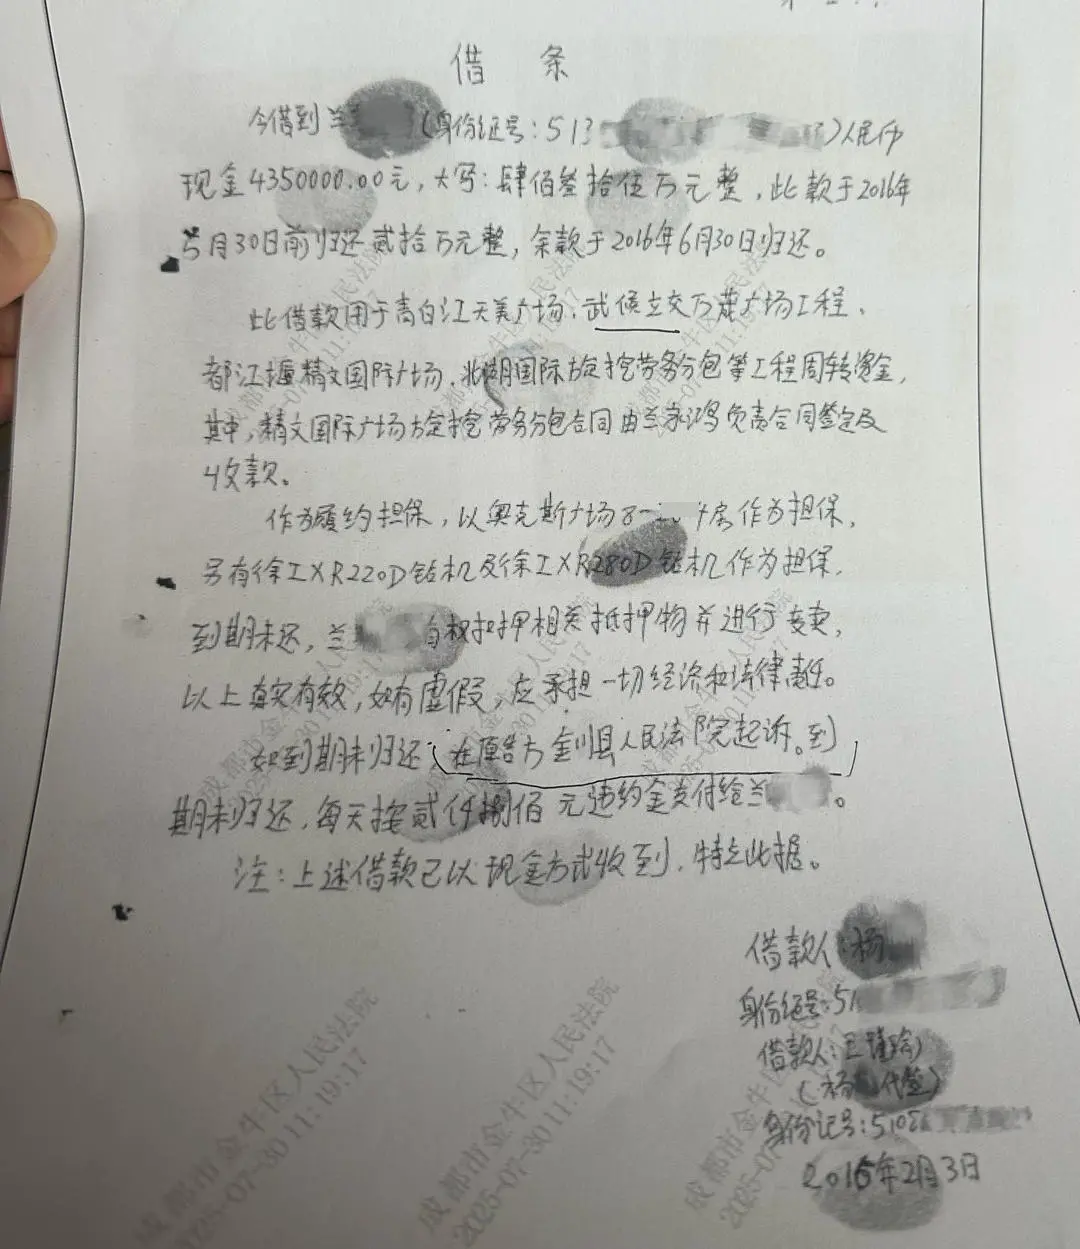 借 条
今借到兰 (身份证号:513 )人民币
现金4350000.00元,大写:肆佰叁拾伍万元整,此款于2016年
5月30日前归还贰拾万元整,余款于2016年6月30日归还。
此借款用于青白江天美广场、武侯立交万达广场工程、
都江堰精文国际广场、北湖国际旋挖劳务分包等工程周转资金,
其中,精文国际广场旋挖劳务分包合同由兰家鸿负责合同签定及
收款。
作为履约担保,以奥克斯广场8- 房作为担保,
另有徐工XR220D钻机及徐工XR280D钻机作为担保,
到期未还,兰 有权扣押相关抵押物并进行变卖,
以上真实有效,如有虚假,应承担一切经济和法律责任。
如到期未归还,在原告方金川县人民法院起诉。到
期未归还,每天按贰仟捌佰元违约金支付给兰 。
注:上述借款已以现金方式收到,特立此据。
借款人:杨
身份证号:51
借款人:王
(杨 代签)
身份证号:510
2016年2月3日
成都市金牛区人民法院
2025-07-30 11:19:17
成都市金牛区人民法院
2025-07-30 11:19:17
成都市金牛区人民法院
2025-07-30 11:19:17